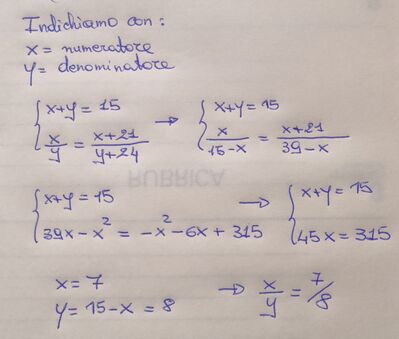 Indichiamo con:
x = numeratore
y = denominatore
{ x+y = 15 → { x+y = 15
x/y = (x+21)/(y+24) x/(15-x) = (x+21)/(39-x)
RUBRICA
{ x+y = 15 → { x+y = 15
39x - x² = -x² - 6x + 315 45x = 315
x = 7
y = 15 - x = 8 → x/y = 7/8